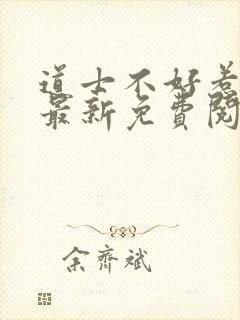 道士不好惹
最新免費閱
余齊斌